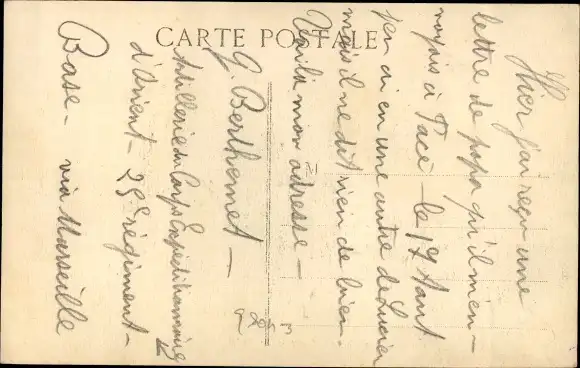 CARTE POSTALE
Hier j'ai reçu une
lettre de papa qu'il m'en-
voyais à Pacé - le 17 Aout
j'en ai eu une autre de Lucien
mais il ne dit rien de bien.
Voilà mon adresse -
G. Berthemet -
Artillerie du Corps Expéditionnaire
d'Orient - 25e régiment -
Base - via Marseille